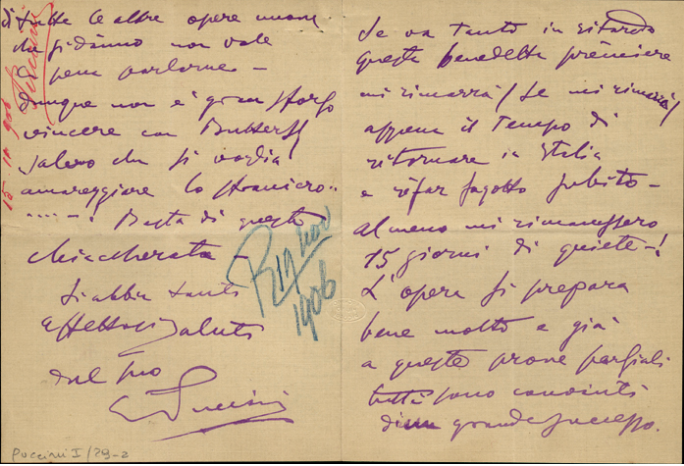 Se va tanto in ritardo
questa benedetta première
mi rimarrà (se mi rimarrà)
appena il tempo di
ritornare in Italia
e rifar fagotto subito –
almeno mi rimanessero
15 giorni di quiete –!
L'opera si prepara
bene molto e già
a queste prove parziali
tutti sono convinti
di un grande successo.
di tutte le altre opere nuove
che si danno non vale
pena parlarne –
Dunque non è gran sforzo
vincere con Butterfly
salvo che si voglia
amareggiare lo straniero..
....–! Basta di queste
chiaccherata –
Si abbia tanti
affettuosi saluti
dal suo
G Puccini
15 11 906
Puccini
R 19 nov
1906
Puccini I/29-2